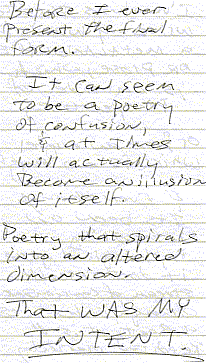 Before I ever
present the final
form.
It can seem
to be a poetry
of confusion,
& at times
will actually
Become an illusion
of itself.
Poetry that spirals
into an altered
dimension.
That WAS MY
INTENT.